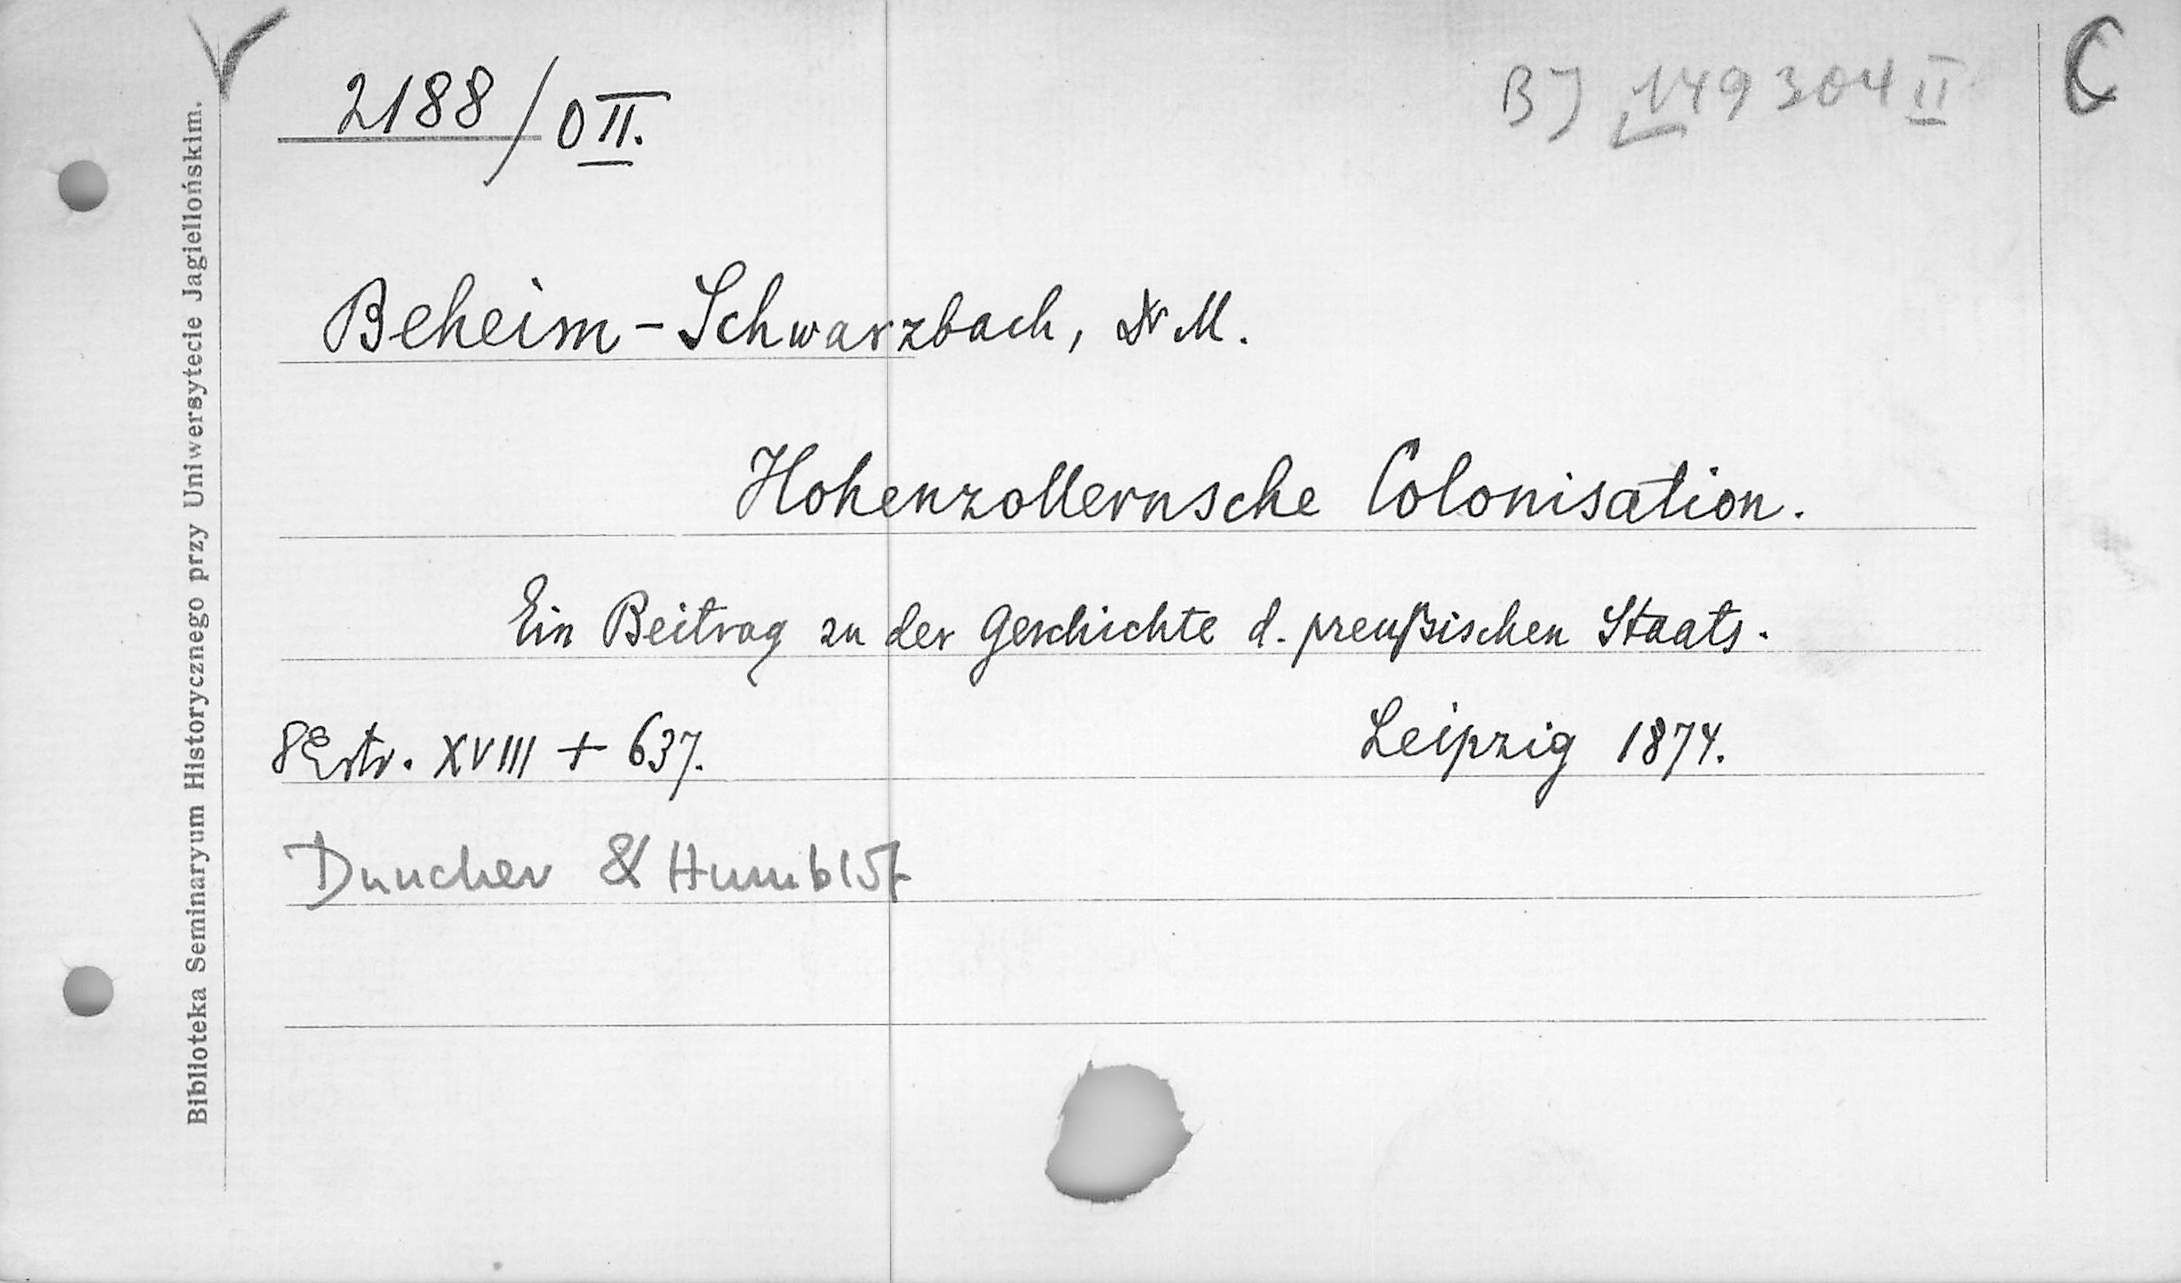 2188/O II.
BJ 149304 II
C
Beheim-Schwarzbach, Dr M.
Hohenzollernsche Colonisation.
Ein Beitrag zu der Geschichte d. preußischen Staats.
8° str. XVIII + 637.
Leipzig 1874.
Duncker & Humblot
Biblioteka Seminaryum Historycznego przy Uniwersytecie Jagiellońskim.